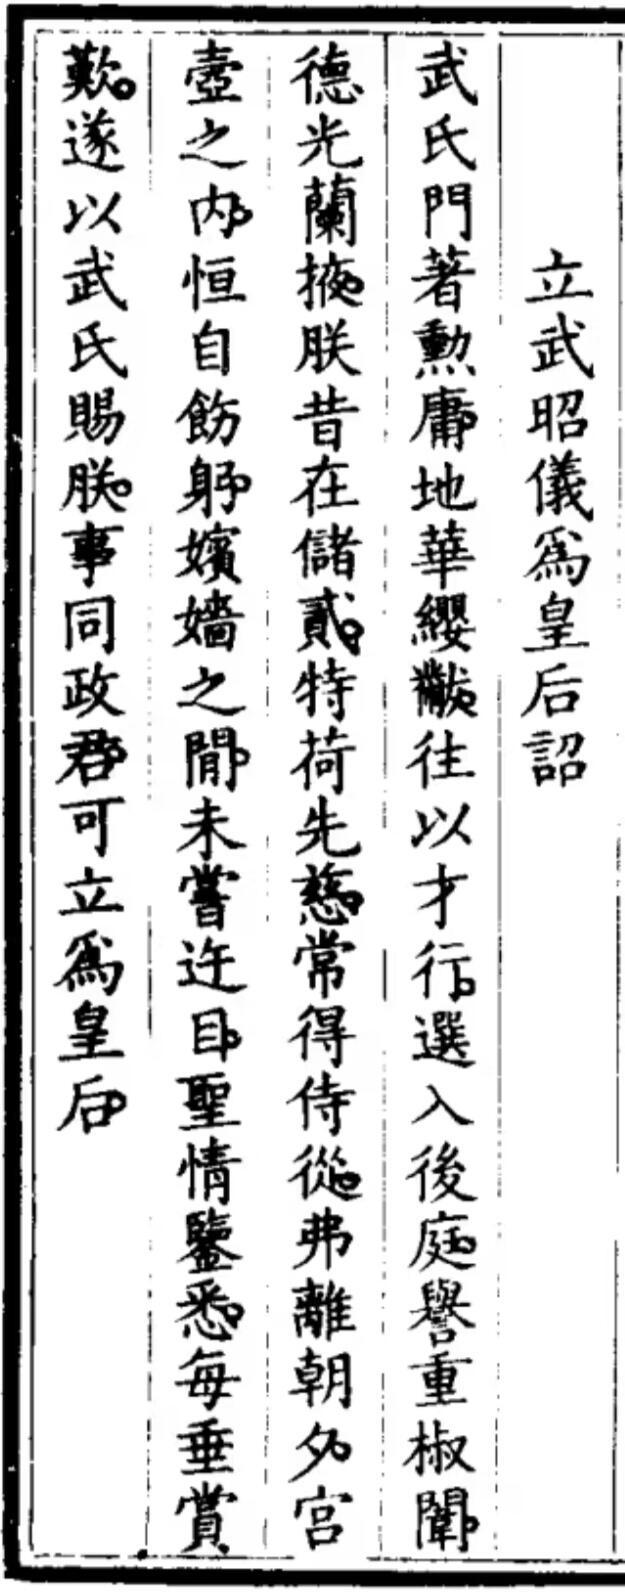 立武昭儀爲皇后詔
武氏門著勲庸。地華纓黻。往以才行。選入後庭。譽重椒闈。
德光蘭掖。朕昔在儲貳。特荷先慈。常得侍從。弗離朝夕。宫
壼之内。恒自飭躬。嬪嬙之間。未嘗迕目。聖情鑒悉。每垂賞
歎。遂以武氏賜朕。事同政君。可立爲皇后。